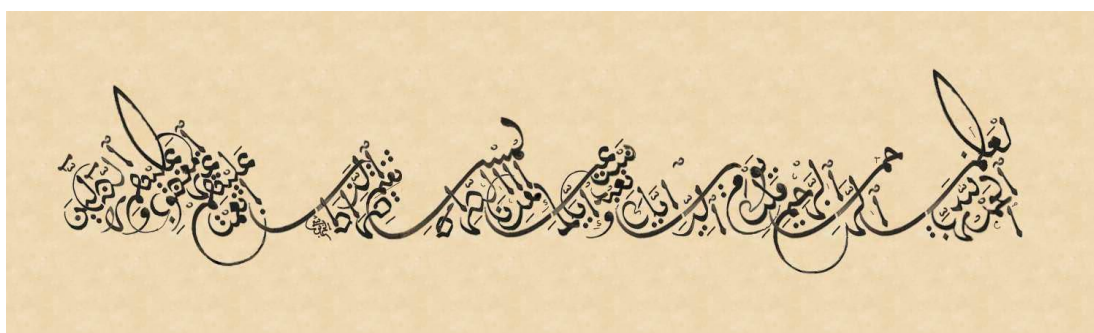 الْحَمْدُ لِلَّهِ رَبِّ الْعٰلَمِينَ الرَّحْمٰنِ الرَّحِيمِ مٰلِكِ يَوْمِ الدِّينِ إِيَّاكَ نَعْبُدُ وَإِيَّاكَ نَسْتَعِينُ اهْدِنَا الصِّرَاطَ الْمُسْتَقِيمَ صِرَاطَ الَّذِينَ أَنْعَمْتَ عَلَيْهِمْ غَيْرِ الْمَغْضُوبِ عَلَيْهِمْ وَلَا الضَّالِّينَ